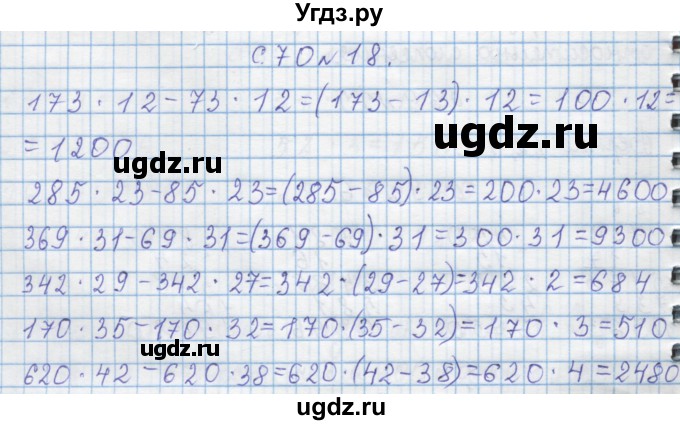 Угдз.ру
С. 70 № 18.
173 · 12 - 73 · 12 = (173 - 13) · 12 = 100 · 12 =
= 1200
ugdz.ru
ugdz.ru
285 · 23 - 85 · 23 = (285 - 85) · 23 = 200 · 23 = 4600
369 · 31 - 69 · 31 = (369 - 69) · 31 = 300 · 31 = 9300
342 · 29 - 342 · 27 = 342 · (29 - 27) = 342 · 2 = 684
170 · 35 - 170 · 32 = 170 · (35 - 32) = 170 · 3 = 510
ugdz.ru
620 · 42 - 620 · 38 = 620 · (42 - 38) = 620 · 4 = 2480
ugdz.ru